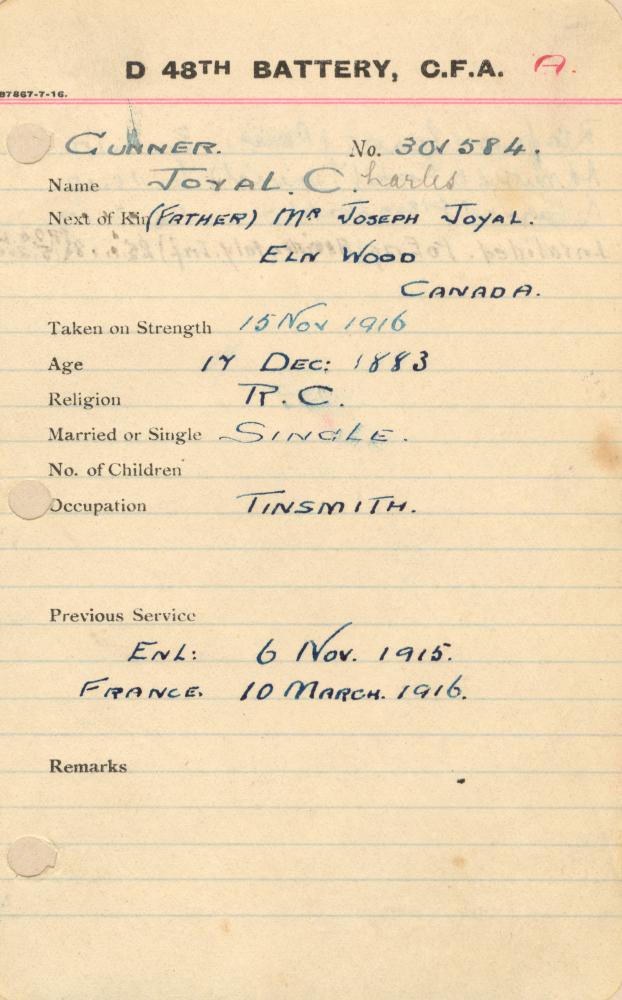 D 48TH BATTERY, C.F.A. A.
87867-7-16.
GUNNER. No. 301584.
Name JOYAL. C.harles
Next of Kin (FATHER) MR JOSEPH JOYAL.
ELN WOOD
CANADA.
Taken on Strength 15 Nov 1916
Age 17 DEC: 1883
Religion R.C.
Married or Single SINGLE.
No. of Children
Occupation TINSMITH.
Previous Service
ENL: 6 Nov. 1915.
FRANCE. 10 MARCH. 1916.
Remarks